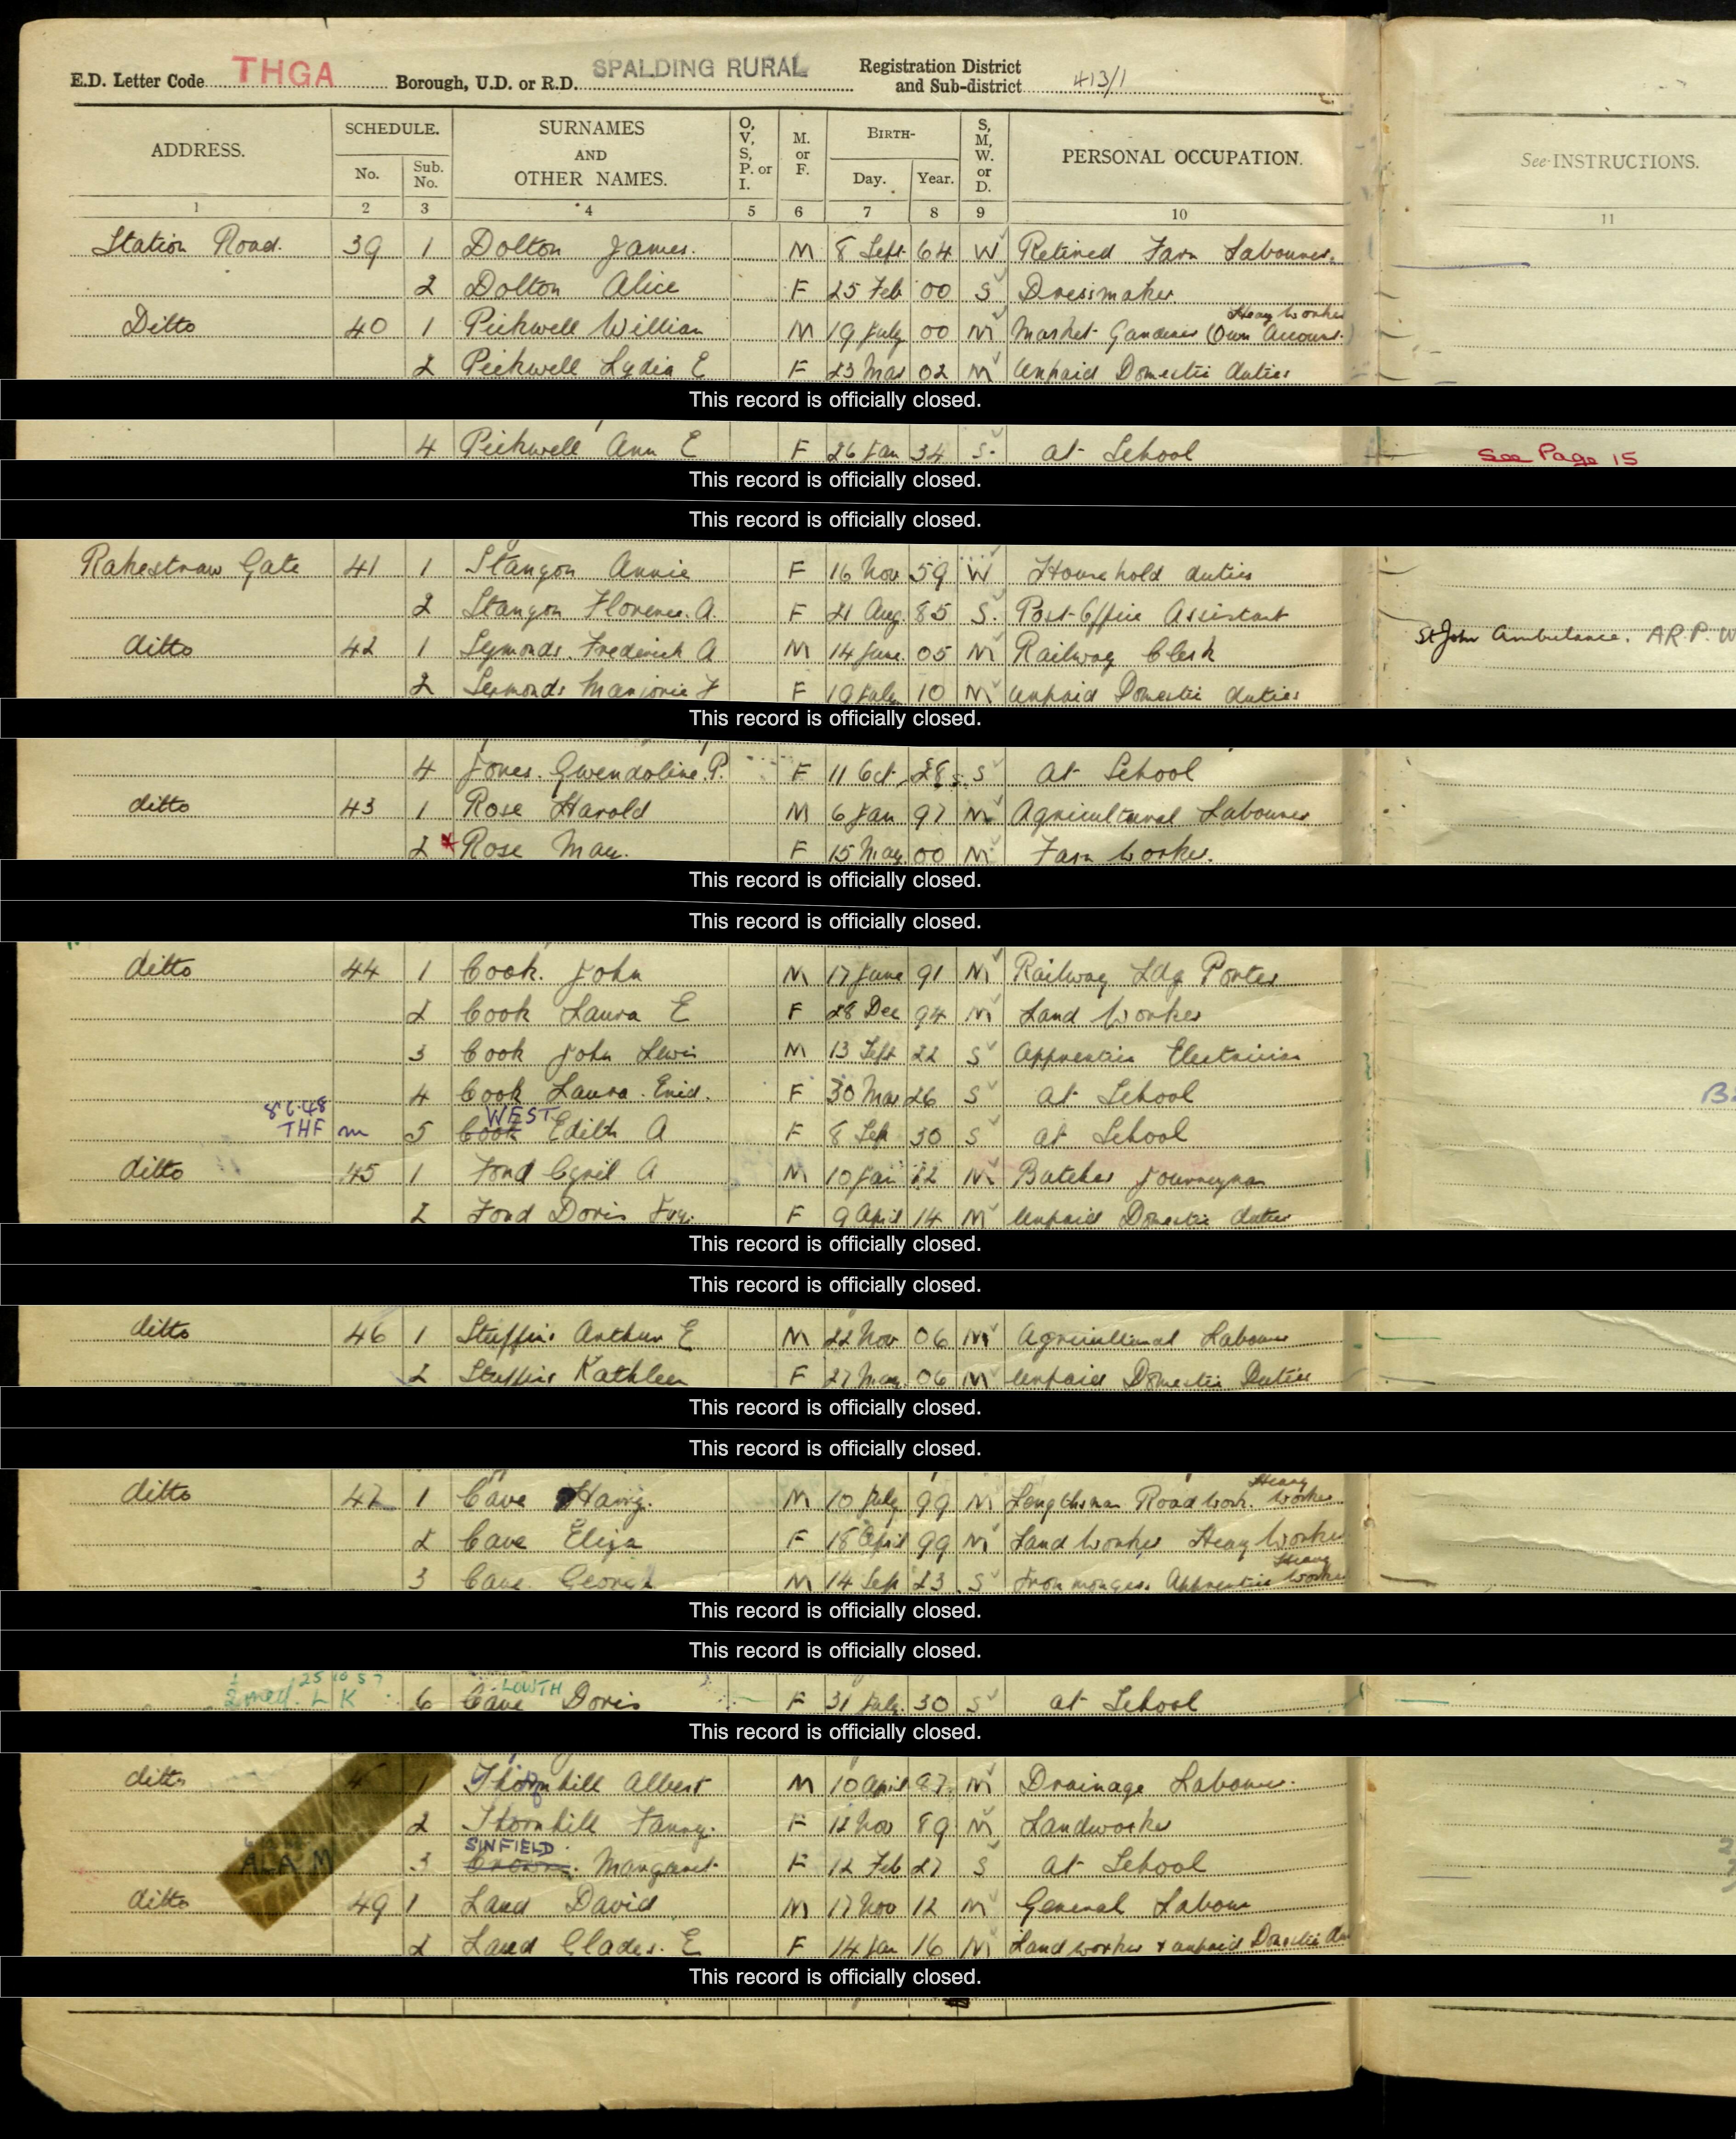 E.D. Letter Code THGA Borough, U.D. or R.D. SPALDING RURAL Registration District and Sub-district 413/1
ADDRESS. SCHEDULE. No. Sub. No. SURNAMES AND OTHER NAMES. O, V, S, P. or I. M. or F. BIRTH- Day. Year. S, M, W. or D. PERSONAL OCCUPATION. See INSTRUCTIONS.
1 2 3 4 5 6 7 8 9 10 11
Station Road. 39 1 Dolton James. M 8 Sept 64 W Retired Farm Labourer.
2 Dolton Alice F 25 Feb 00 S Dressmaker
Heavy Worker
Ditto 40 1 Pickwell William M 19 July 00 M Market Gardener (Own Account.)
2 Pickwell Lydia E F 23 Mar 02 M Unpaid Domestic Duties
This record is officially closed.
4 Pickwell Ann E F 26 Jan 34 S. at School See Page 15
This record is officially closed.
This record is officially closed.
Rakestraw Gate 41 1 Stangon Annie F 16 Nov 59 W Household duties
2 Stangon Florence. A. F 21 Aug. 85 S. Post Office Assistant
St John Ambulance. A R. P. W
ditto 42 1 Symonds. Frederick A M 14 June. 05 M Railway Clerk
2 Symonds Marjorie F F 19 July 10 M Unpaid Domestic duties
This record is officially closed.
4 Jones. Gwendoline. P. F 11 Oct. 28 S at School
ditto 43 1 Rose Harold M 6 Jan 97 M Agricultural Labourer
2 * Rose May. F 15 May 00 M Farm Worker.
This record is officially closed.
This record is officially closed.
ditto 44 1 Cook. John M 17 June 91 M Railway Ldg Porter
2 Cook Laura E F 28 Dec 94 M Land Worker
3 Cook John Lewis M 13 Sept 22 S Apprentice Electrician
4 Cook Laura. Enid. F 30 Mar 26 S at School
8.6.48 WEST
THF m 5 Cook Edith A F 8 Sep 30 S at School
ditto 45 1 Ford Cyril A M 10 Jan 12 M Butcher Journeyman
2 Ford Doris F 9 April 14 M Unpaid Domestic duties
This record is officially closed.
This record is officially closed.
ditto 46 1 Stuffins Arthur E M 22 Nov 06 M Agricultural Labourer
2 Stuffins Kathleen F 27 May. 06 M Unpaid Domestic Duties
This record is officially closed.
This record is officially closed.
Heavy
ditto 47 1 Cave Harry. M 10 July 99 M Lengthsman Road Work. Worker
2 Cave Eliza F 18 April 99 M Land Worker Heavy Worker
Heavy
3 Cave. George M 14 Sep 23 S Ironmongers Apprentice Worker
This record is officially closed.
This record is officially closed.
25 10 57 LOWTH
L K 6 Cave Doris F 31 July. 30 S at School
This record is officially closed.
ditto 1 Thornhill Albert M 10 April 87 M Drainage Labourer.
2 Thornhill Fanny. F 12 Nov 89 M Landworker
SINFIELD.
3 Margaret F 12 Feb 27 S at School
ditto 49 1 Land David M 17 Nov 12 M General Labour
2 Land Glades. E F 14 Jan 16 M Land worker & unpaid Domestic
This record is officially closed.